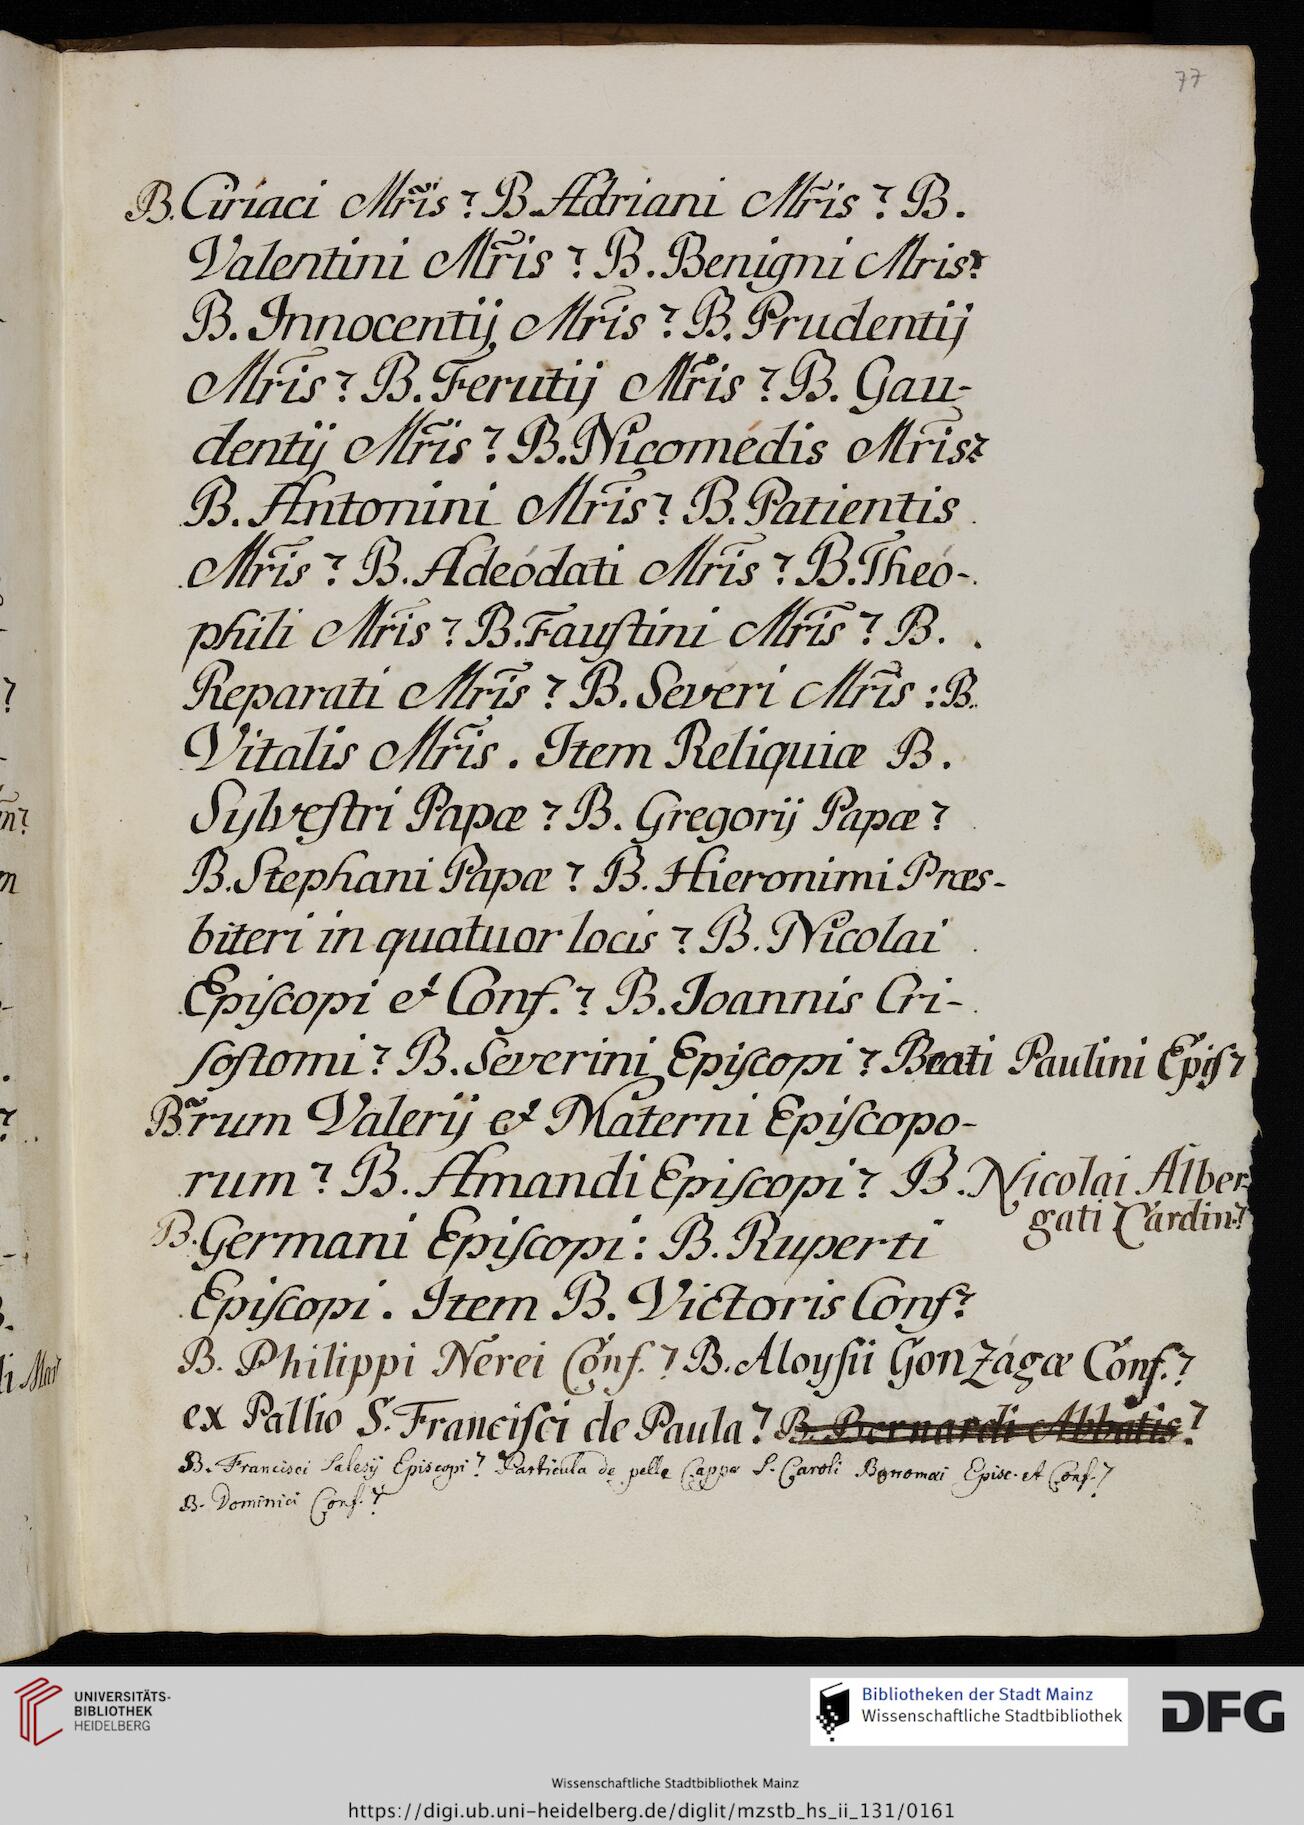 77
B. Ciriaci Mr̃is? B. Adriani Mr̃is? B.
Valentini Mr̃is? B. Benigni Mris?
B. Innocentij Mr̃is? B. Prudentij
Mr̃is? B. Ferutij Mr̃is? B. Gau-
dentij Mr̃is? B. Nicomédis Mr̃is?
B. Antonini Mr̃is? B. Patientis
Mr̃is? B. Adeódati Mr̃is? B. Theó-
phili Mr̃is? B. Fauſtini Mr̃is? B.
Reparati Mr̃is? B. Severi Mr̃is: B.
Vitalis Mr̃is. Item Reliquiæ B.
Sylveſtri Papæ? B. Gregorij Papæ?
B. Stephani Papæ? B. Hieronimi Præs-
biteri in quatuor locis? B. Nicolai
Epiſcopi et Conf.? B. Joannis Cri-
ſoſtomi? B. Severini Epiſcopi? Beati Paulini Epiſ?
B̃rum Valerij et Materni Epiſcopo-
rum? B. Amandi Epiſcopi? B. Nicolai Alber-
gati Cardin.?
B. Germani Epiſcopi: B. Ruperti
Epiſcopi. Item B. Victoris Conf?
B. Philippi Nerei Conf.? B. Aloyſii Gonzágæ Conf.?
ex Pallio S. Franciſci de Paula? B. Bernardi Abbatis?
B. Francisci Salesij Episcopi? Particula de pelle Cappæ S. Caroli Borromæi Episc. et Conf.?
B. Dominici Conf.?
UNIVERSITÄTS-
BIBLIOTHEK
HEIDELBERG
Bibliotheken der Stadt Mainz
Wissenschaftliche Stadtbibliothek
DFG
Wissenschaftliche Stadtbibliothek Mainz
https://digi.ub.uni-heidelberg.de/diglit/mzstb_hs_ii_131/0161